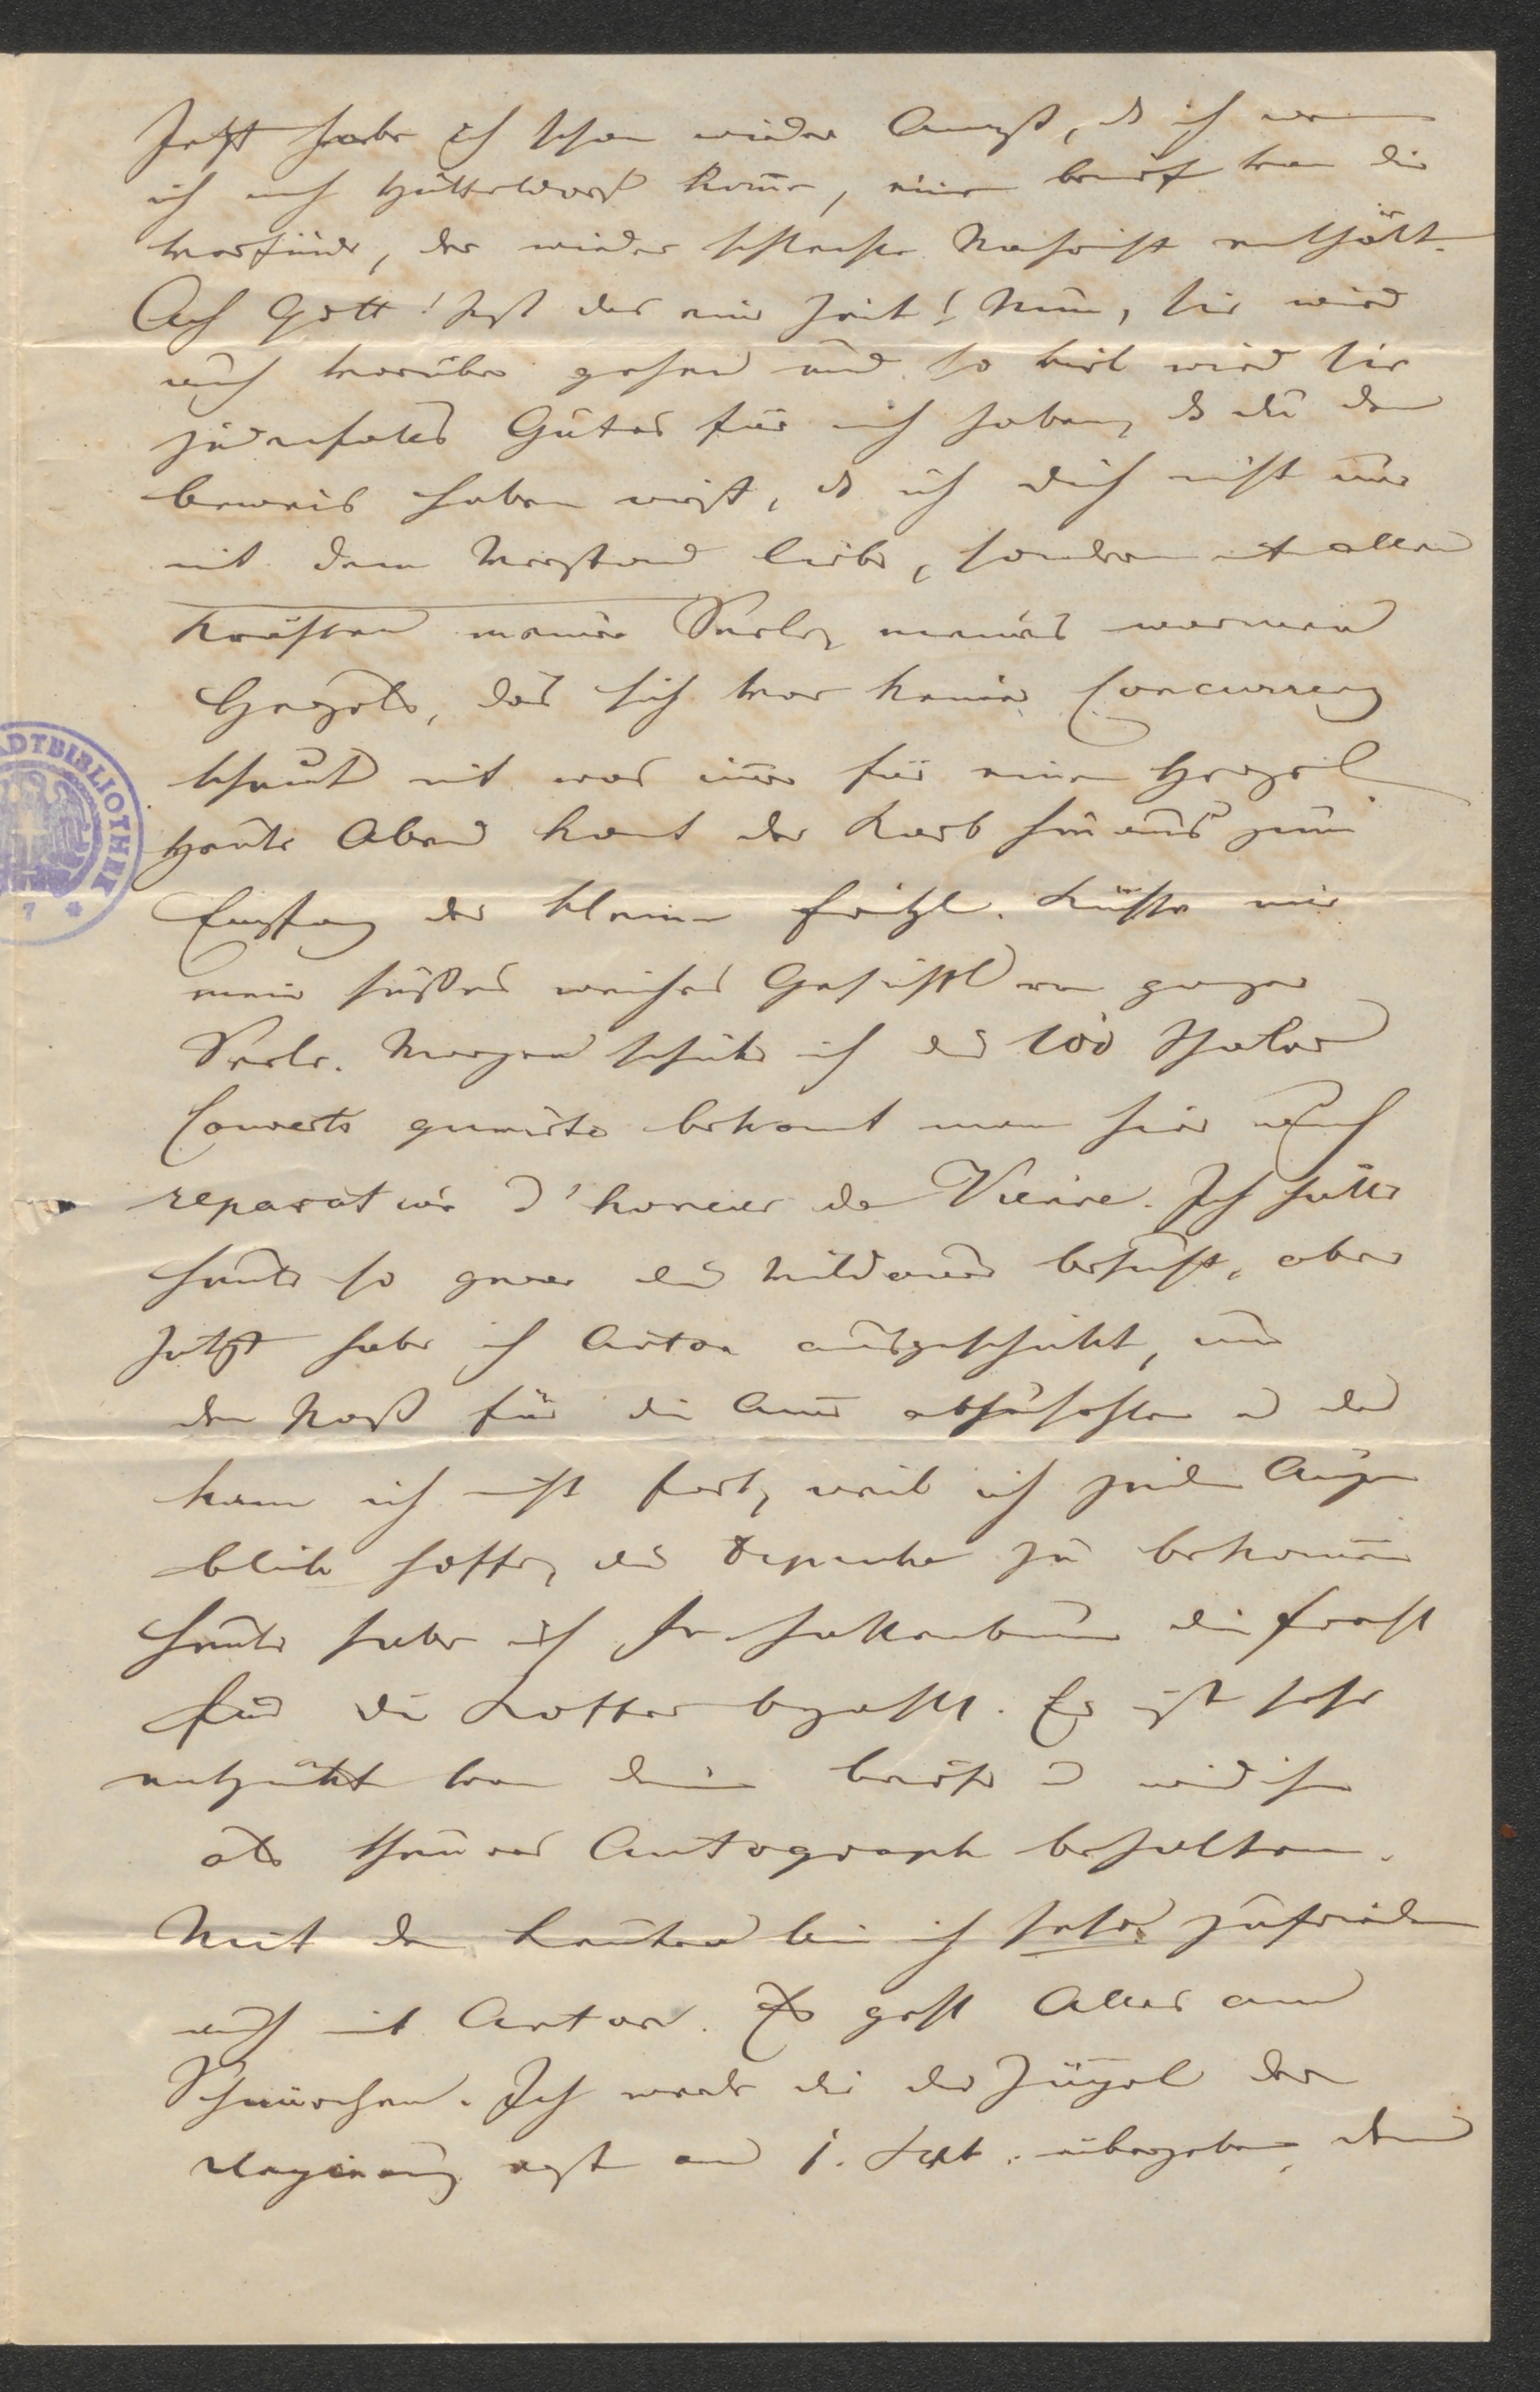 Jetzt habe ich schon wieder Angst, dß ich wenn
ich nach Hütteldorf kom̅e, einen Brief von dir
vorfinde, der wieder schlechte Nachricht enthält.
Ach Gott! Ist das eine Zeit! Nun, sie wird
auch vorüber gehen und so viel wird sie
jedenfalls Gutes für mich haben, dß du den
Beweis haben wirst, dß ich dich nicht nur
mit dem Verstand liebe, sondern mit allen
Kräften meiner Seele, meines warmen
Herzens, das sich vor keiner Concurrenz
scheut mit was im̅er für einem Herzerl
Heute Abend kom̅t der Karl hinaus zum
Empfang der kleinen Fritzl. Küsse mir
mein süßes weiches Gesichtl von ganzer
Seele. Morgen schicke ich die 100 Thaler
Couverts gumirte bekom̅t man hier auch
reparation d'honeur de Vienne. Ich hätte
heute so gerne die besucht, aber
jetzt habe ich Anton ausgeschickt, um
den Paß für die Anna abzuholen u da
kann ich nicht fort, weil ich jeden Augen
blick hoffe, die Depesche zu bekom̅en
Heute habe ich die Fracht
für die Koffer bezahlt. Er ist sehr
entzückt von deinem Briefe u wird ihn
als theures Autograph behalten.
Mit den Leuten bin ich sehr zufrieden
auch mit Anton. Es geht Alles am
Schnürchen. Ich werde dir die Zügel der
Regierung erst am 1. Sept. übergeben, denn
ADTBIBLIOTHEK
7 4